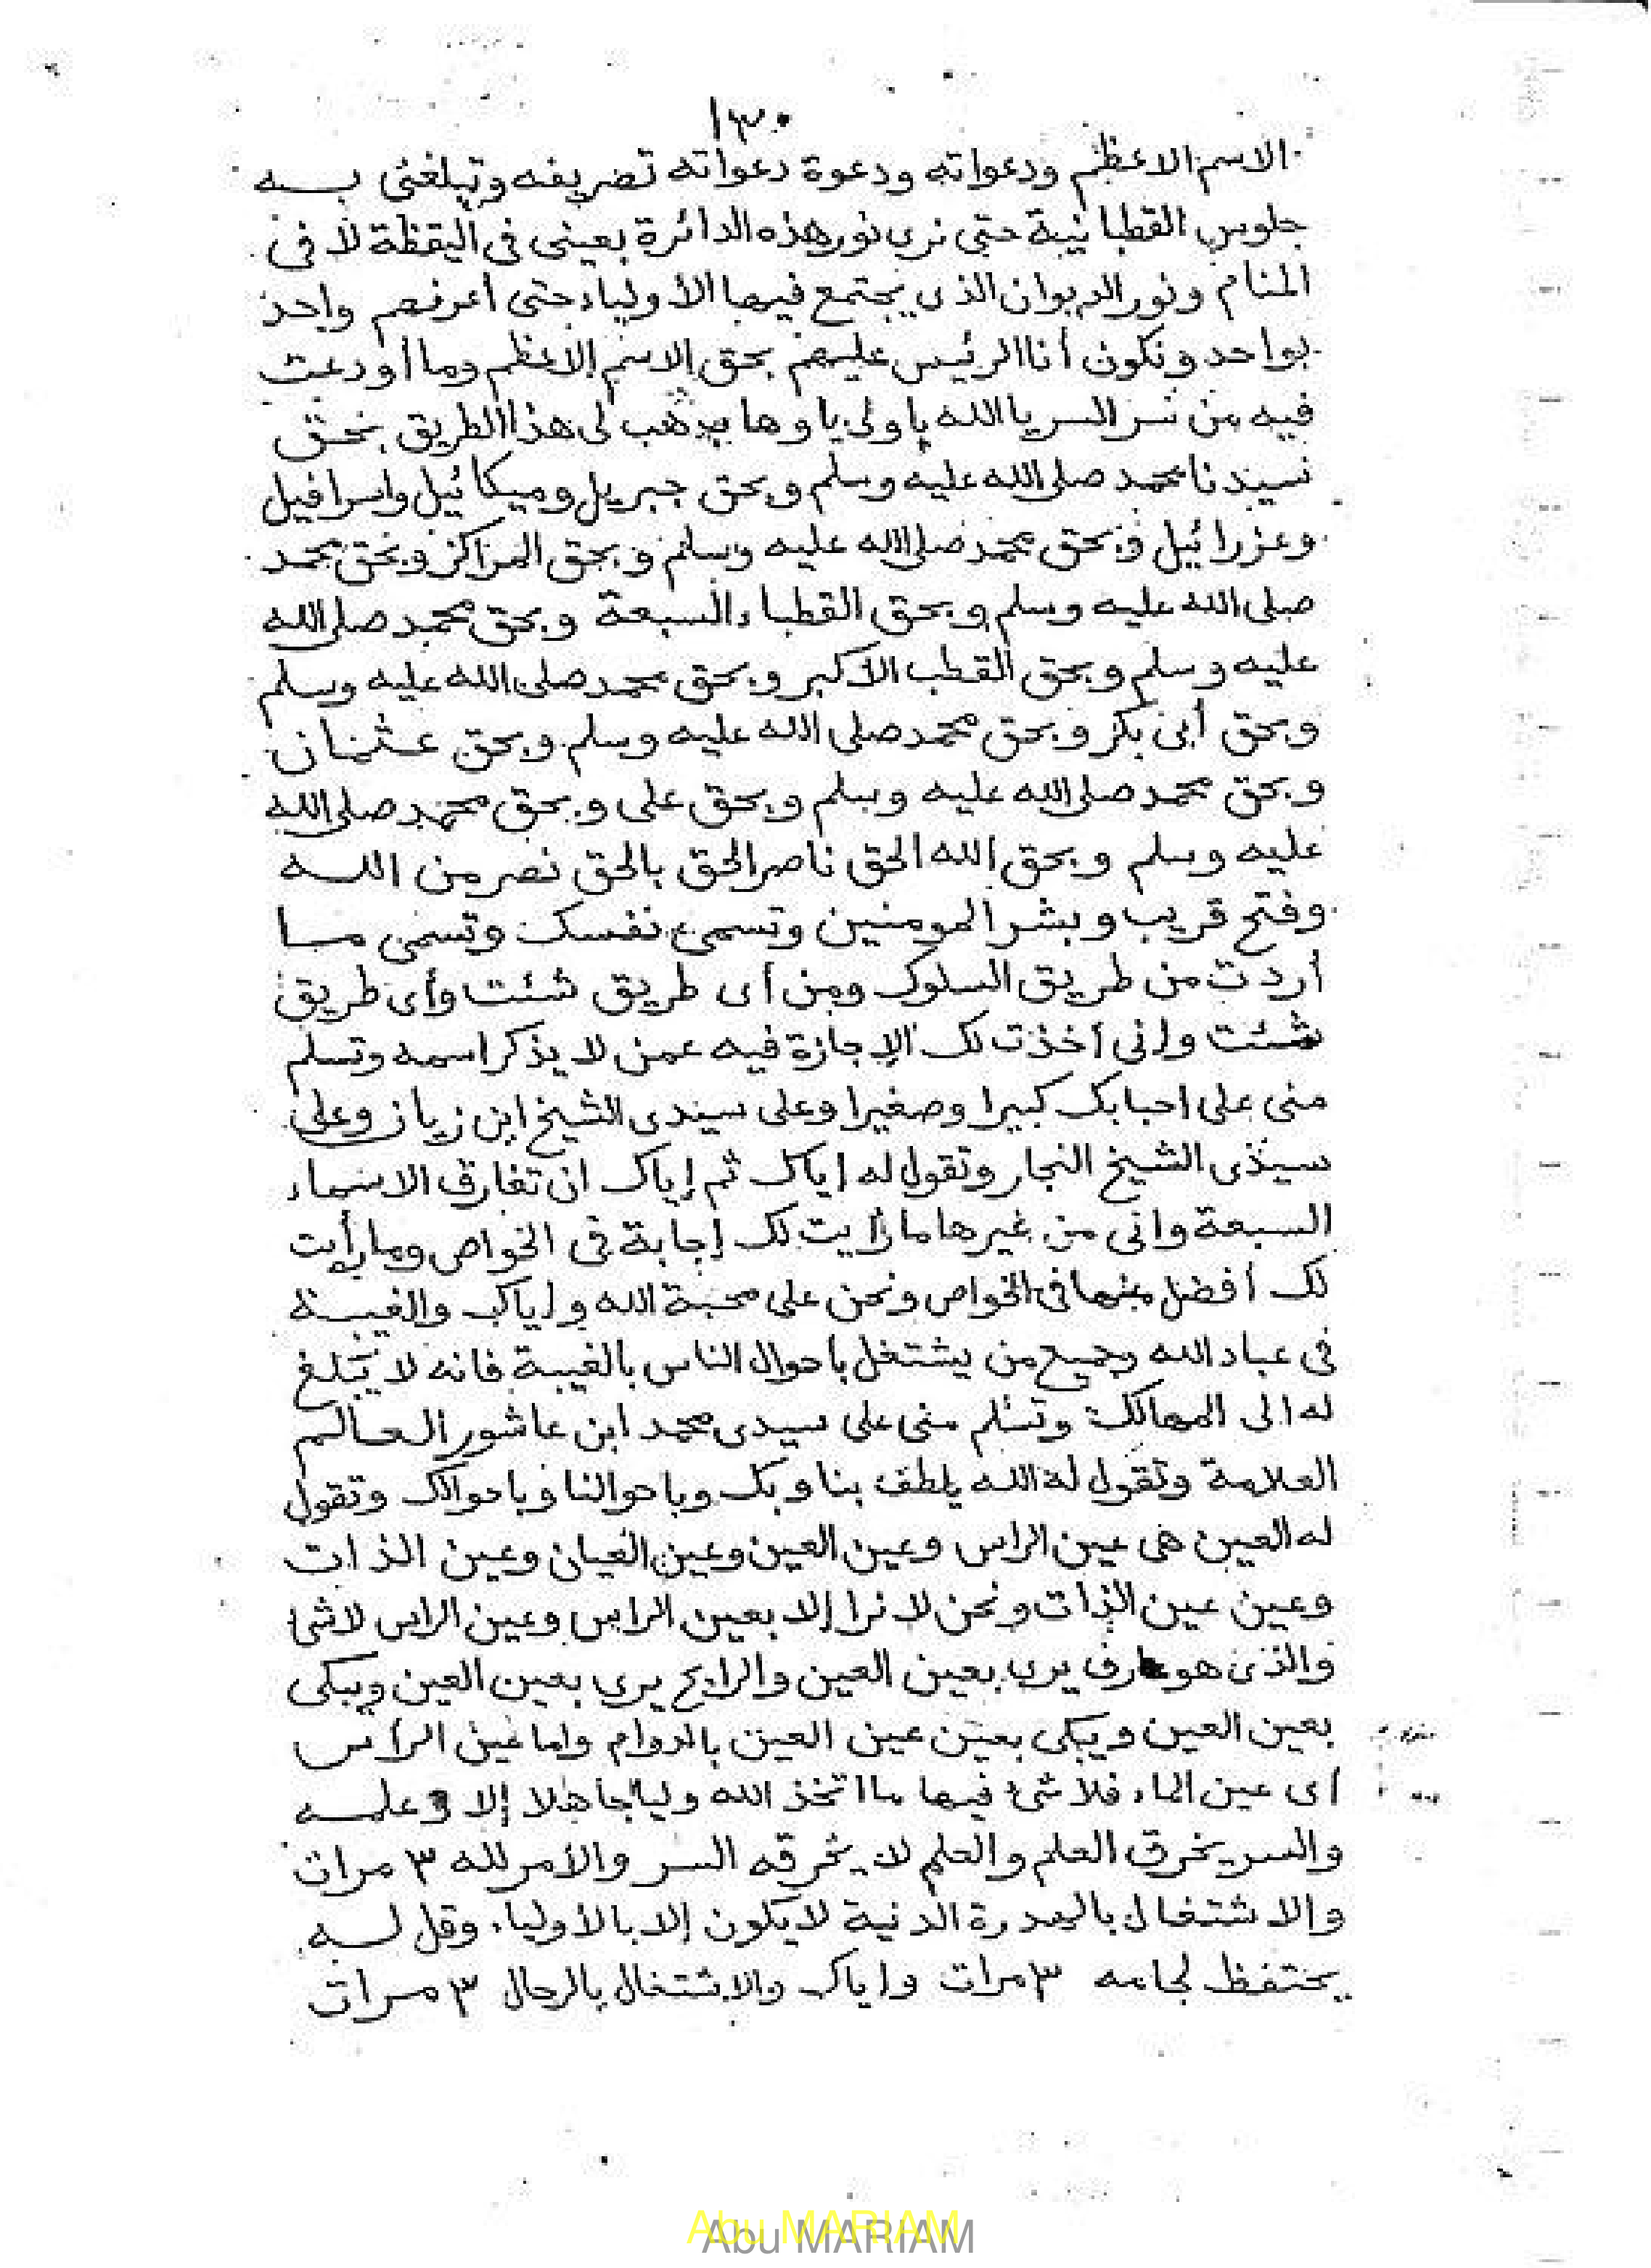 ١٣٠
الاسم الاعظم ودعواته ودعوة دعواته تصريفه وتبلغنى بـــه
جلوس القطبانية حتى نرى نور هذه الدائرة بعينى فى اليقظة لا فى
المنام ونور الديوان الذى يجتمع فيها الأولياء حتى أعرفهم واحد
بواحد ونكون أنا الرئيس عليهم بحق الاسم الاعظم وما أودعت
فيه من سر السر يا الله يا ولى يا وهاب هب لى هذا الطريق بحق
سيدنا محمد صلى الله عليه وسلم وبحق جبريل وميكائيل واسرافيل
وعزرائيل وبحق محمد صلى الله عليه وسلم وبحق المراكز وبحق محمد
صلى الله عليه وسلم وبحق القطباء السبعة وبحق محمد صلى الله
عليه وسلم وبحق القطب الأكبر وبحق محمد صلى الله عليه وسلم
وبحق أبى بكر وبحق محمد صلى الله عليه وسلم وبحق عثمان
وبحق محمد صلى الله عليه وسلم وبحق على وبحق محمد صلى الله
عليه وسلم وبحق الله الحق ناصر الحق بالحق نصر من اللـــه
وفتح قريب وبشر المومنين وتسمى نفسك وتسمى مـــا
أردت من طريق السلوك ومن أى طريق شئت وأى طريق
شئت وانى أخذت لك الإجازة فيه عمن لا يذكر اسمه وتسلم
منى على احبابك كبيرا وصغيرا وعلى سيدى الشيخ ابن زيان وعلى
سيدى الشيخ النجار وتقول له إياك ثم إياك ان تفارق الاسماء
السبعة وانى من غيرها ما رأيت لك إجابة فى الخواص وما رأيت
لك أفضل منها فى الخواص ونحن على محبة الله وإياك والغيبـــة
فى عباد الله وجميع من يشتغل بأحوال الناس بالغيبة فانه لا يبلغ
له الى المهالك وتسلم منى على سيدى محمد ابن عاشور العـــالم
العلامة وتقول له الله يلطف بنا وبك وباحوالنا وباحوالك وتقول
له العين هى عين الراس وعين العين وعين العيان وعين الذات
وعين عين الذات ونحن لا نرا إلا بعين الراس وعين الراس لاشئ
والذى هو عارف يرى بعين العين والرابح يرى بعين العين ويبكى
بعين العين ويبكى بعين عين العين بالدوام واما عين الرأس
أى عين الماء فلا شئ فيها ما اتخذ الله وليا جاهلا إلا وعلمـــه
والسر يخرق العلم والعلم لا يخرقه السر والأمر لله ٣ مرات
والاشتغال الدنية لا يكون إلا بالأولياء وقل لـــه
يحتفظ لجامه ٣ مرات وإياك والاشتغال بالرجال ٣ مـــرات
Abu MARIAM